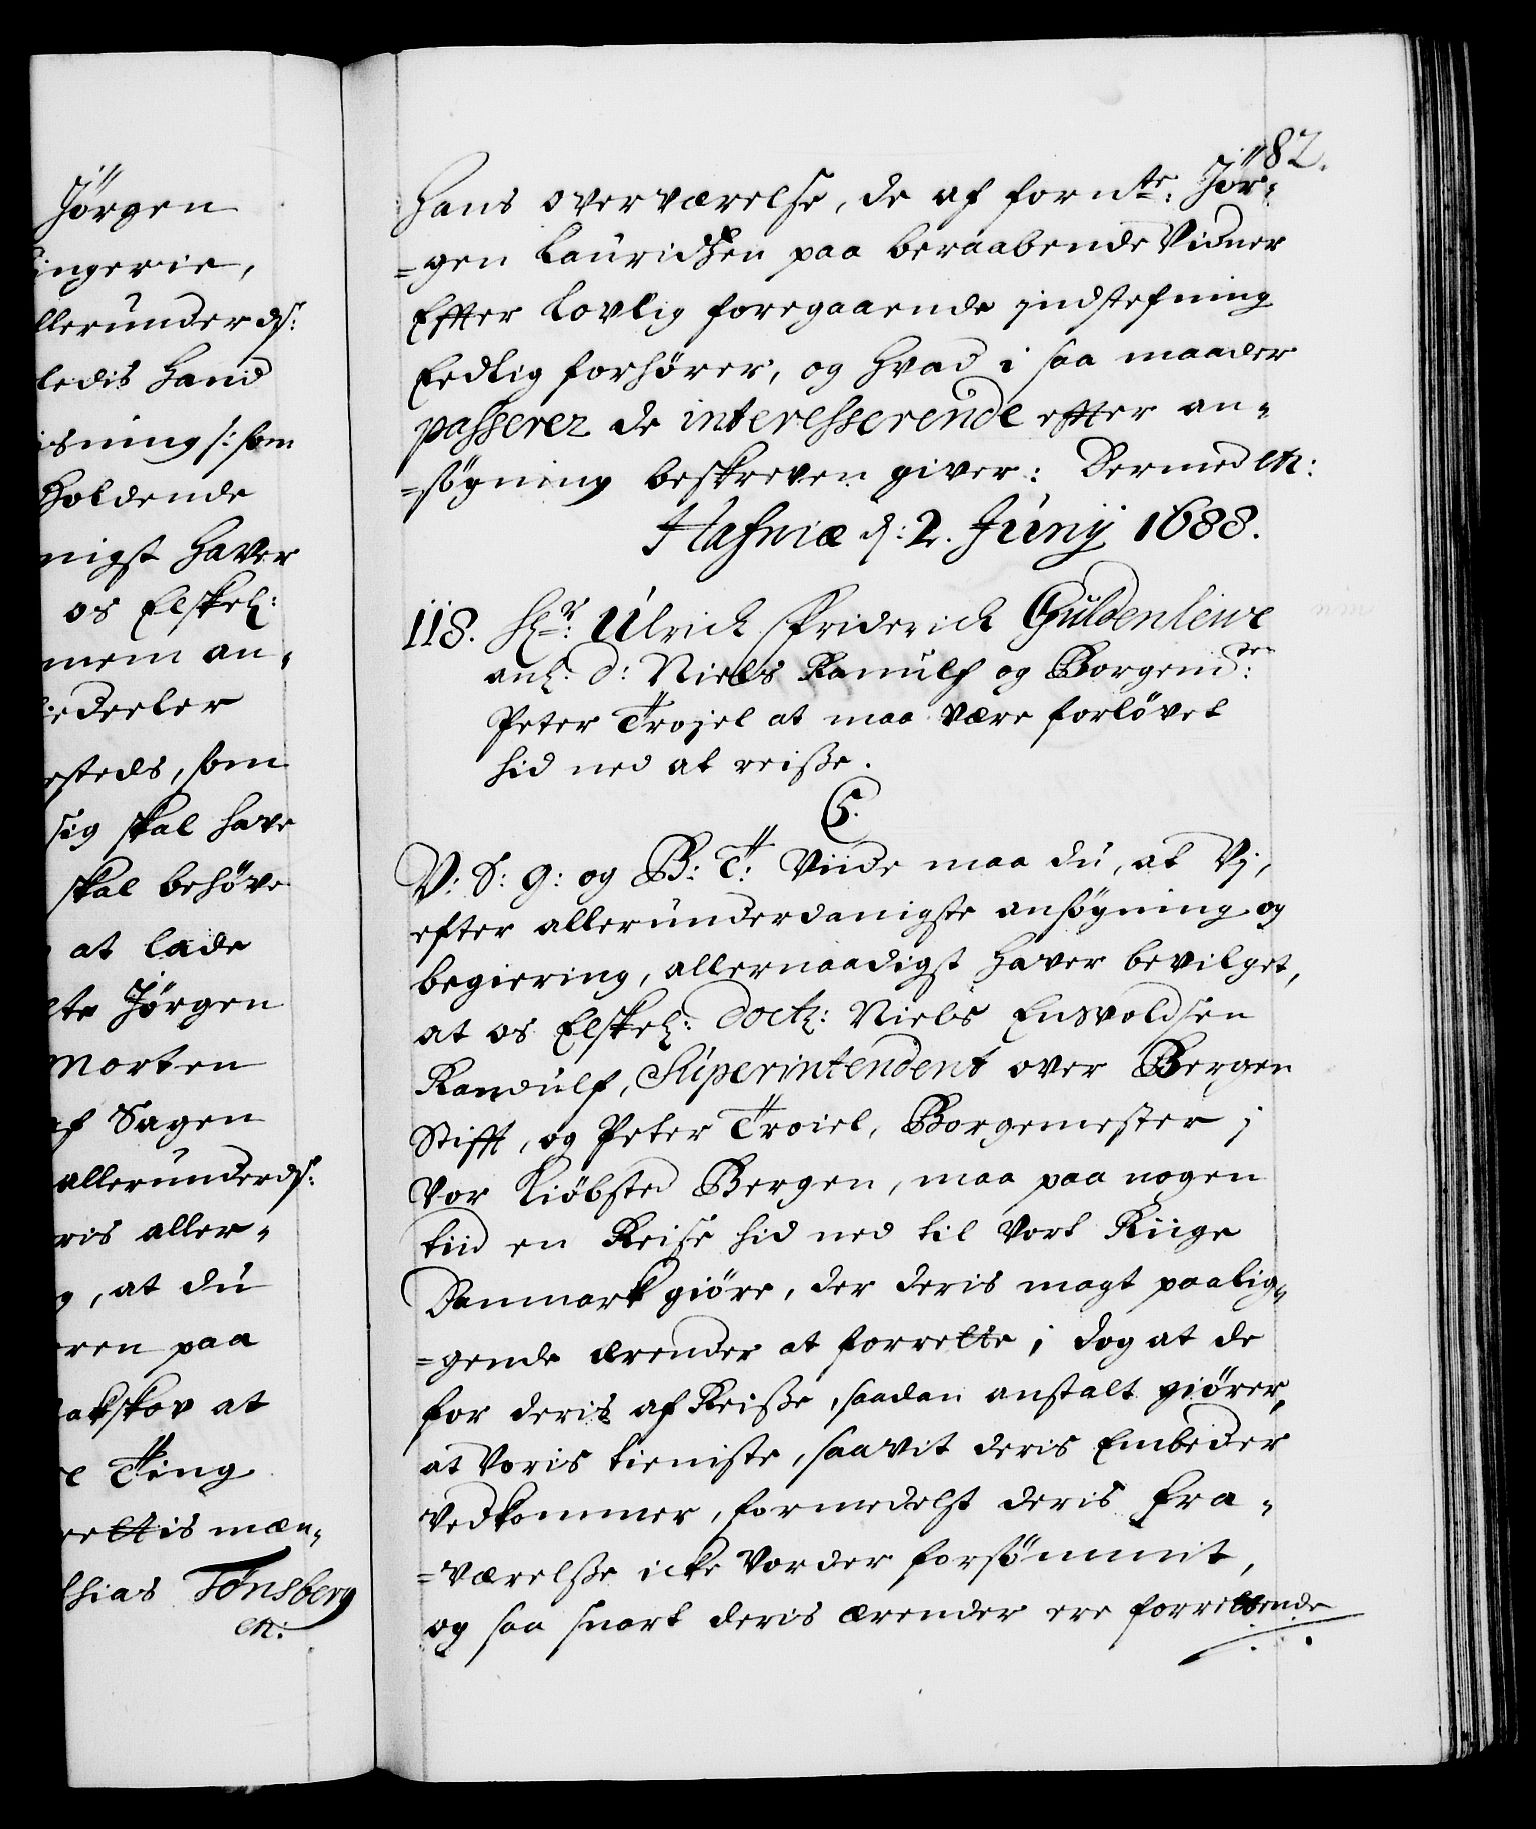 Jørgen
ingerie,
llerunderds:
ledis hand
isning /: som
holdende
nigst haver
os Elskel:
mem an-
edeeler
esteds, som
sig skal have
skal behøve
at lade
lte Jørgen
Morten
af Sagen
allerunderds:
ris aller-
g, at du
ren paa
akskov at
e Ting
rettis mæn-
hias Tønsberg
etc:
82.
Hans overværelse, de af fornte: Jør-
=gen Lauridssen paa beraabende Vidner
Efter Lovlig foregaaende indstefning
Eedlig forhører, og hvad i saa maader
passerer de interesserende efter an-
=søgning beskreven giver: Dermed etc:
Hafniæ d: 2. Junij 1688.
118. Hr: Ulrich Friderich Guldenleuе
anl: D: Niels Randulf og Borgemdr:
Peter Trojel at maa være forlövet
hid ned at reisse.
C5.
V: S: G: og B: T: Viide maa du, at Vj,
efter allerunderdanigste ansøgning og
begiering, allernaadigst haver bevilget,
at os Elskel: Doct: Niels Ensvoldsen
Randulf, Superintendent over Bergen
Stifft, og Peter Troiel, Borgemester j
vor Kiöbsted Bergen, maa paa nogen
tiid en Reise hid ned til vort Riige
Danmark giöre, der deris magt paalig-
=gende ærender at forrette; dog at de
for deris af Reisse, saadan anstalt giører,
at Voris tieniste, saavit deris Embeder
vedkommer, formedelst deris fra-
=værelsse icke vorder forsømmit,
og saa snart deris ærender ere forrettende